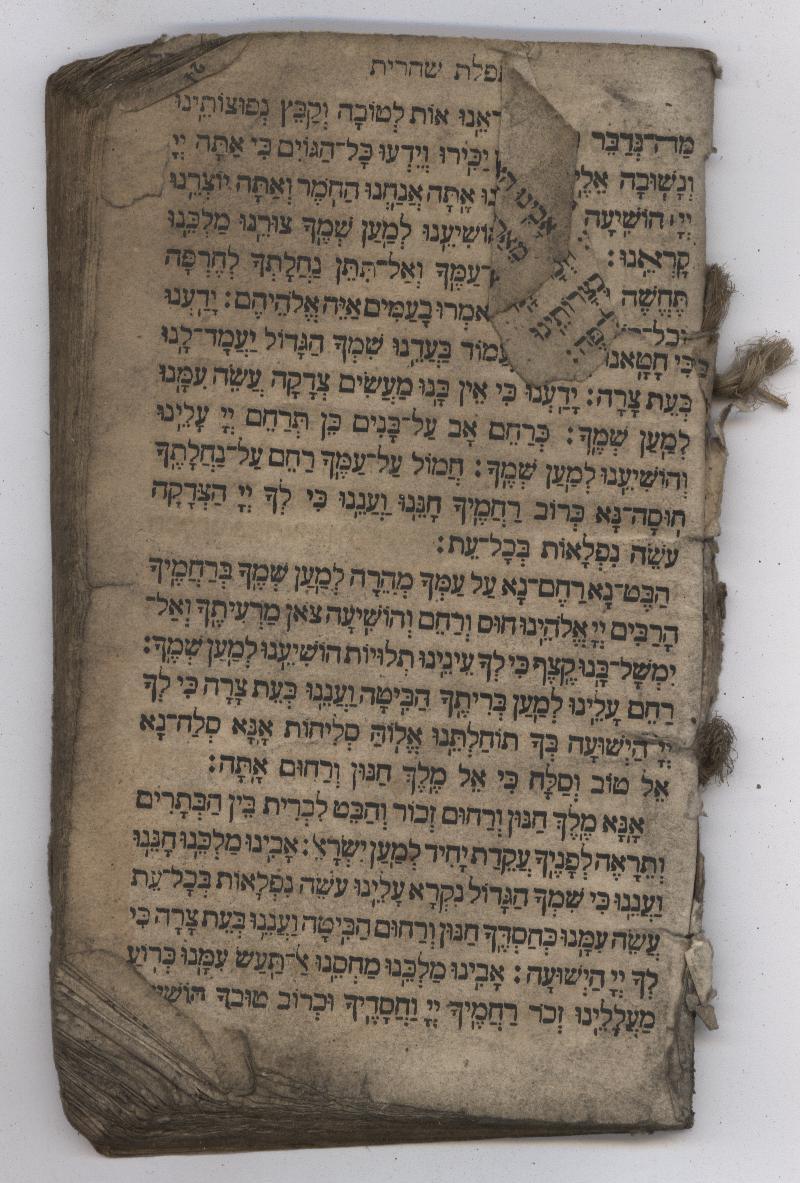 תפלת שהרית
24
מה־נְּדַבֵּר רְאֵנוּ אוֹת לְטוֹבָה וְקַבֵּץ נְפוּצוֹתֵינוּ
וְנָשׁוּבָה אֵלֶי יַכִּירוּ וְיֵדְעוּ כָּל־הַגּוֹיִם כִּי אַתָּה יְיָ
יְיָ הוֹשִׁיעָה אָבִינוּ אַתָּה אֲנַחְנוּ הַחֹמֶר וְאַתָּה יוֹצְרֵנוּ
קָרְאֵנוּ: הוֹשִׁיעֵנוּ לְמַעַן שְׁמֶךָ צוּרֵנוּ מַלְכֵּנוּ
תֶּחֱשֶׁה עַמֶּךָ וְאַל־תִּתֵּן נַחֲלָתְךָ לְחֶרְפָּה
וכל־ אמְרוּ בָעַמִּים אַיֵּה אֱלֹהֵיהֶם: יָדַעְנוּ
כִּי חָטָאנוּ עֲמוֹד בַּעֲדֵנוּ שִׁמְךָ הַגָּדוֹל יַעֲמָד־לָנוּ
בְּעֵת צָרָה: יָדַעְנוּ כִּי אֵין בָּנוּ מַעֲשִׂים צְדָקָה עֲשֵׂה עִמָּנוּ
לְמַעַן שְׁמֶךָ: כְּרַחֵם אָב עַל־בָּנִים כֵּן תְּרַחֵם יְיָ עָלֵינוּ
וְהוֹשִׁיעֵנוּ לְמַעַן שְׁמֶךָ: חֲמוֹל עַל־עַמֶּךָ רַחֵם עַל־נַחֲלָתֶךָ
חוּסָה־נָּא כְּרוֹב רַחֲמֶיךָ חָנֵּנוּ וַעֲנֵנוּ כִּי לְךָ יְיָ הַצְּדָקָה
עֹשֵׂה נִפְלָאוֹת בְּכָל־עֵת:
הַבֶּט־נָא רַחֶם־נָא עַל עַמְּךָ מְהֵרָה לְמַעַן שְׁמֶךָ בְּרַחֲמֶיךָ
הָרַבִּים יְיָ אֱלֹהֵינוּ חוּס וְרַחֵם וְהוֹשִׁיעָה צֹאן מַרְעִיתֶךָ וְאַל־
יִמְשָׁל־בָּנוּ קֶצֶף כִּי לְךָ עֵינֵינוּ תְלוּיוֹת הוֹשִׁיעֵנוּ לְמַעַן שְׁמֶךָ:
רַחֵם עָלֵינוּ לְמַעַן בְּרִיתֶךָ הַבִּיטָה וַעֲנֵנוּ בְּעֵת צָרָה כִּי לְךָ
יְיָ הַיְשׁוּעָה בְּךָ תוֹחַלְתֵּנוּ אֱלוֹהַּ סְלִיחוֹת אָנָּא סְלַח־נָא
אֵל טוֹב וְסַלָּח כִּי אֵל מֶלֶךְ חַנּוּן וְרַחוּם אָתָּה:
אָנָּא מֶלֶךְ חַנּוּן וְרַחוּם זְכוֹר וְהַבֵּט לִבְרִית בֵּין הַבְּתָרִים
וְתֵרָאֶה לְפָנֶיךָ עֲקֵדַת יָחִיד לְמַעַן יִשְׂרָאֵל: אָבִינוּ מַלְכֵּנוּ חָנֵּנוּ
וַעֲנֵנוּ כִּי שִׁמְךָ הַגָּדוֹל נִקְרָא עָלֵינוּ עֹשֵׂה נִפְלָאוֹת בְּכָל־עֵת
עֲשֵׂה עִמָּנוּ כְּחַסְדֶּךָ חַנּוּן וְרַחוּם הַבִּיטָה וַעֲנֵנוּ בְּעֵת צָרָה כִּי
לְךָ יְיָ הַיְשׁוּעָה: אָבִינוּ מַלְכֵּנוּ מַחְסֵנוּ אַל־תַּעַשׂ עִמָּנוּ כְּרוֹעַ
מַעֲלָלֵינוּ זְכֹר רַחֲמֶיךָ יְיָ וַחֲסָדֶיךָ וּכְרוֹב טוּבְךָ